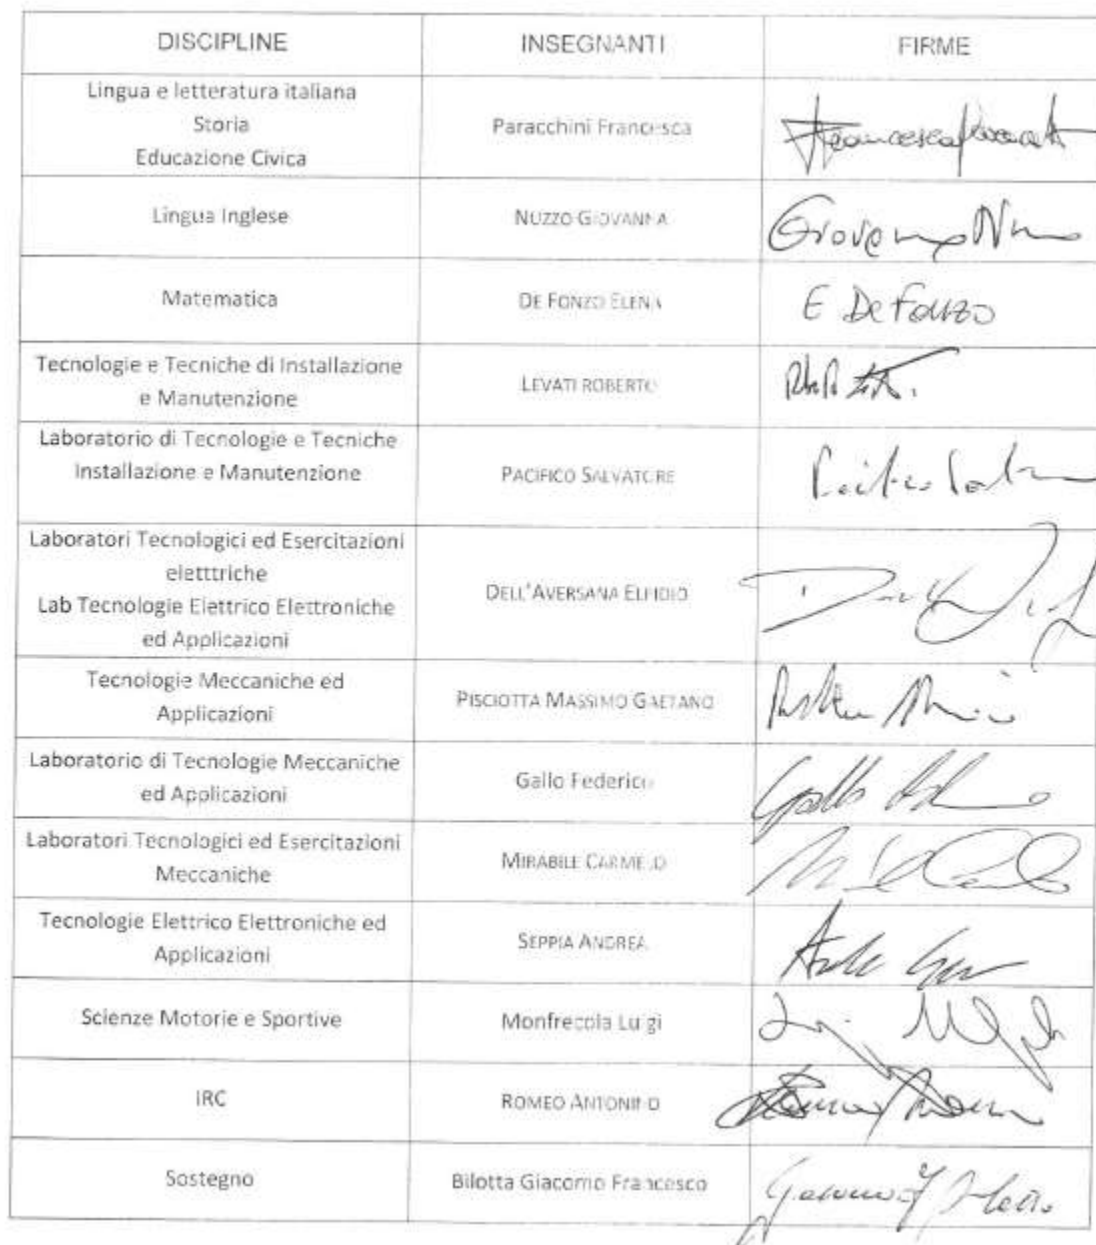 DISCIPLINE INSEGNANTI FIRME
Lingua e letteratura italiana
Storia
Educazione Civica
Paracchini Francesca
Lingua Inglese
NUZZO GIOVANNA
Giovanna
Matematica
DE FONZO ELENA
E De Fonzo
Tecnologie e Tecniche di Installazione
e Manutenzione
LEVATI ROBERTO
Laboratorio di Tecnologie e Tecniche
Installazione e Manutenzione
PACIFICO SALVATORE
Laboratori Tecnologici ed Esercitazioni
eletttriche
Lab Tecnologie Elettrico Elettroniche
ed Applicazioni
DELL'AVERSANA ELPIDIO
Tecnologie Meccaniche ed
Applicazioni
PISCIOTTA MASSIMO GAETANO
Laboratorio di Tecnologie Meccaniche
ed Applicazioni
Gallo Federico
Gallo
Laboratori Tecnologici ed Esercitazioni
Meccaniche
MIRABILE CARMELO
Tecnologie Elettrico Elettroniche ed
Applicazioni
SEPPIA ANDREA
Scienze Motorie e Sportive
Monfrecola Luigi
IRC
ROMEO ANTONINO
Sostegno
Bilotta Giacomo Francesco